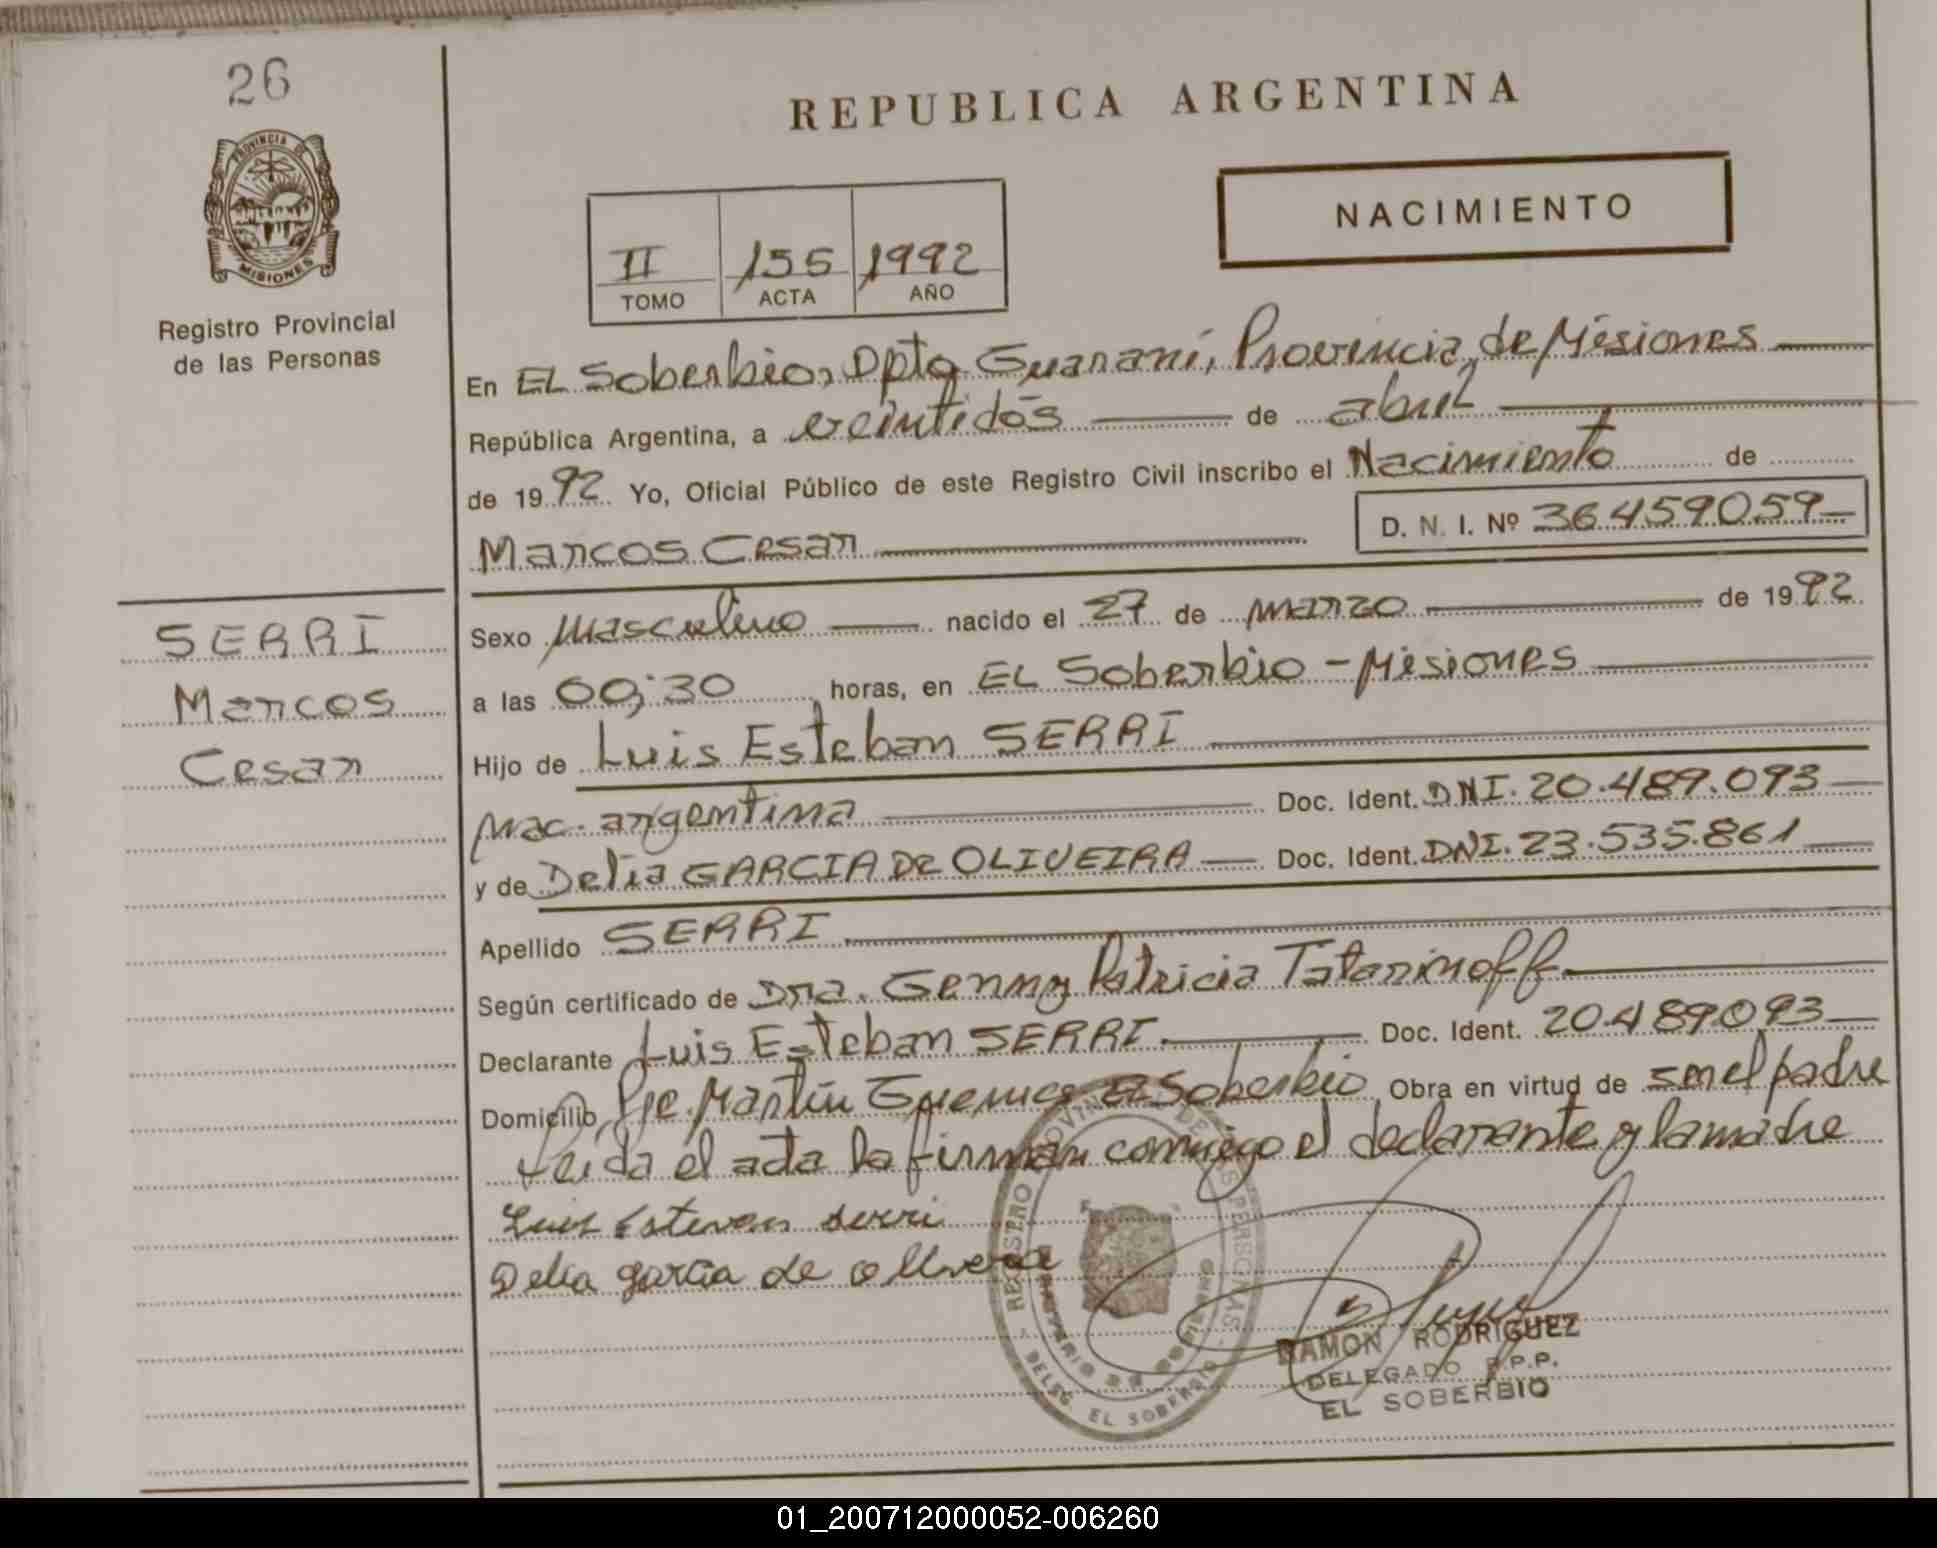 26
PROVINCIA DE
MISIONES
Registro Provincial
de las Personas
SERRI
Marcos
Cesar
REPUBLICA ARGENTINA
NACIMIENTO
II 155 1992
TOMO ACTA AÑO
En EL Soberbio, Dpto Guarani, Provincia de Misiones
República Argentina, a veintidós de abril
de 1992 Yo, Oficial Público de este Registro Civil inscribo el Nacimiento de
Marcos Cesar D. N. I. Nº 36459059
Sexo Masculino nacido el 27 de marzo de 1992
a las 00;30 horas, en EL Soberbio - Misiones
Hijo de Luis Esteban SERRI
Nac. argentina Doc. Ident. DNI. 20.489.093
y de Delia GARCIA DE OLIVEIRA Doc. Ident. DNI. 23.535.861
Apellido SERRI
Según certificado de Dra. Genny Patricia Tatarinoff
Declarante Luis Esteban SERRI Doc. Ident. 20.489.093
Domicilio, Pje. Martín Guemes El Soberbio Obra en virtud de ser el padre
Leida el acta la firman conmigo el declarante y la madre
Luis Esteven serri
Delia garcia de ollvera
REGISTRO PROVINCIAL DE LAS PERSONAS
DELEG EL SOBERBIO
RAMON RODRIGUEZ
DELEGADO R.P.P.
EL SOBERBIO
01_200712000052-006260